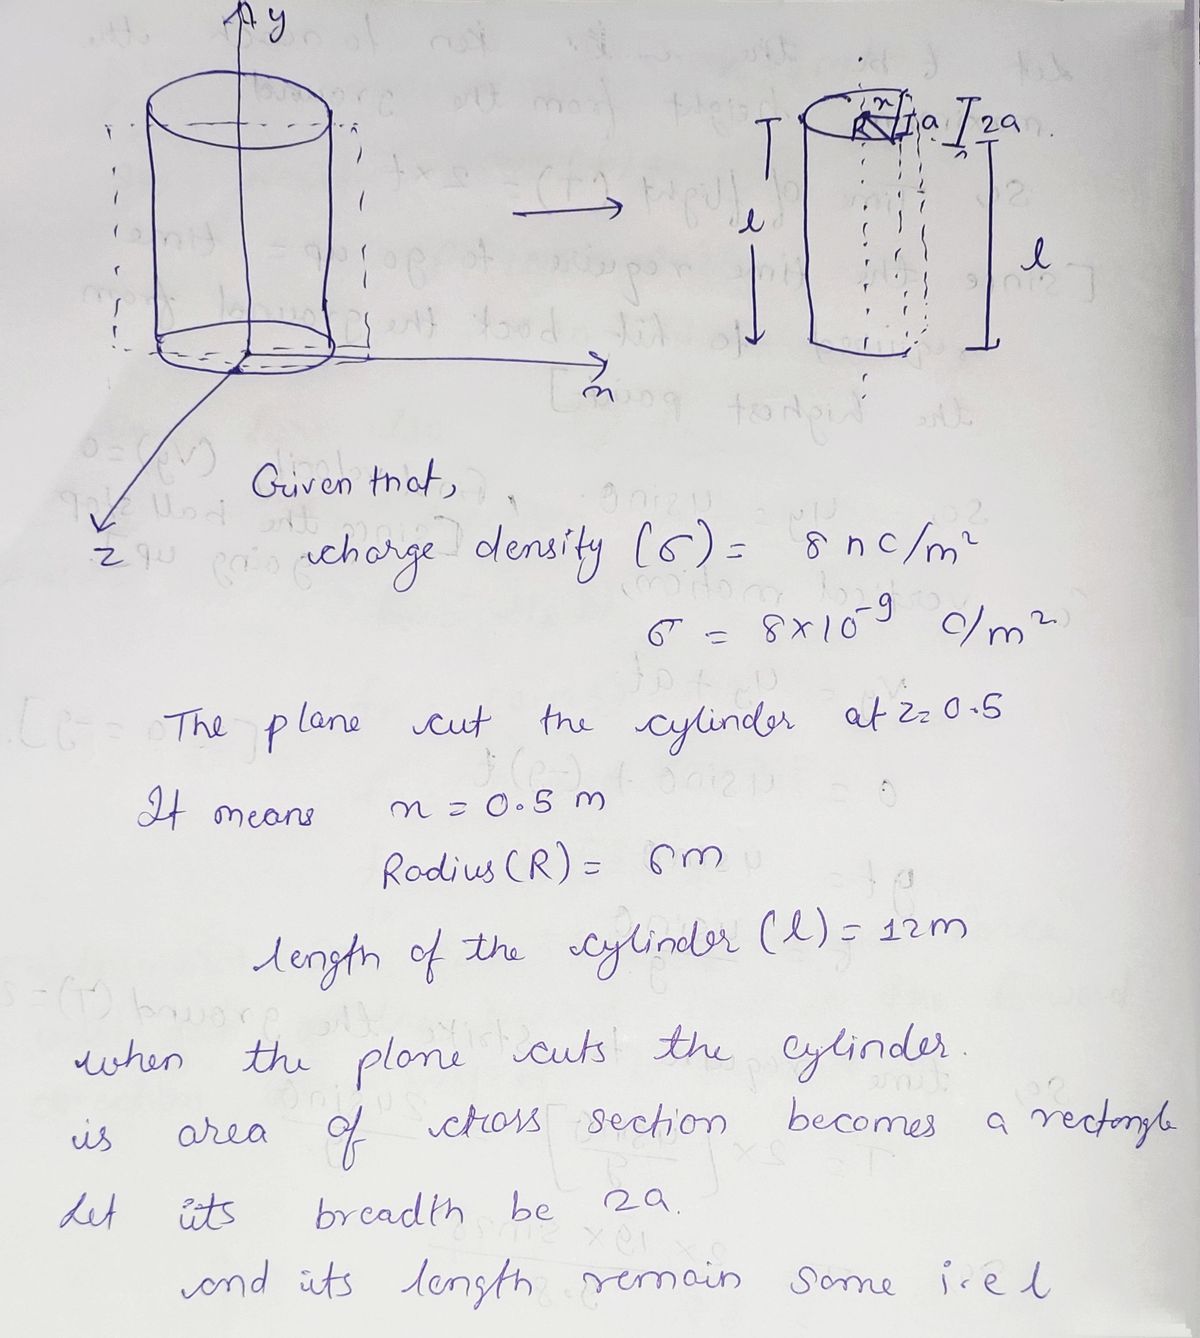 y
x
R
a
2a
l
l
x
z
Given that,
charge density (σ) = 8 nC/m²
σ = 8×10⁻⁹ C/m²
The plane cut the cylinder at z=0.5
It means x = 0.5 m
Radius (R) = 6m
length of the cylinder (l) = 12m
when the plane cuts the cylinder.
is area of cross section becomes a rectangle
Let its breadth be 2a.
and its length remain same i.e l